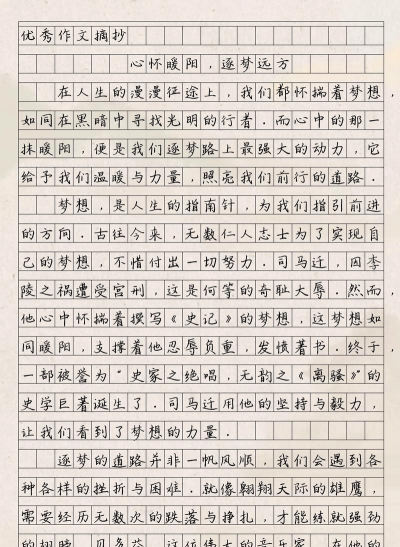 优秀作文摘抄
心怀暖阳，逐梦远方
在人生的漫漫征途上，我们都怀揣着梦想，
如同在黑暗中寻找光明的行者．而心中的那一
抹暖阳，便是我们逐梦路上最强大的动力，它
给予我们温暖与力量，照亮我们前行的道路．
梦想，是人生的指南针，为我们指引前进
的方向．古往今来，无数仁人志士为了实现自
己的梦想，不惜付出一切努力．司马迁，因李
陵之祸遭受宫刑，这是何等的奇耻大辱．然而，
他心中怀揣着撰写《史记》的梦想，这梦想如
同暖阳，支撑着他忍辱负重，发愤著书．终于，
一部被誉为"史家之绝唱，无韵之《离骚》"的
史学巨著诞生了．司马迁用他的坚持与毅力，
让我们看到了梦想的力量．
逐梦的道路并非一帆风顺，我们会遇到各
种各样的挫折与困难．就像翱翔天际的雄鹰，
需要经历无数次的跌落与挣扎，才能练就强劲
的翅膀．贝多芬，这位伟大的音乐家，在他的